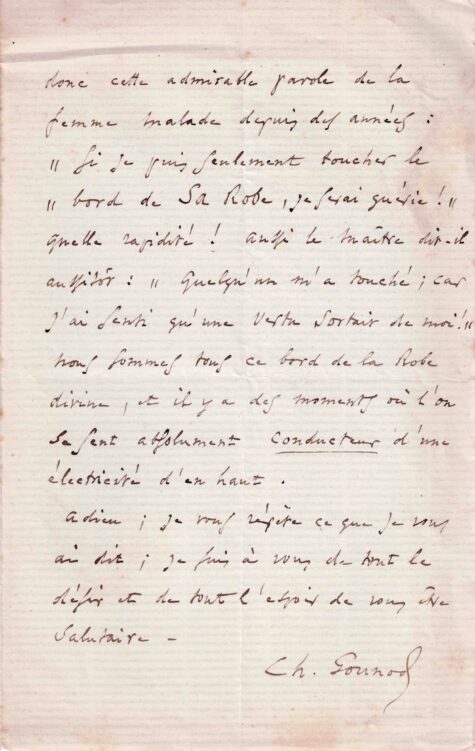 donc cette admirable parole de la
femme malade depuis des années :
" Si je puis seulement toucher le
" bord de Sa Robe, je serai guérie ! "
quelle rapidité ! aussi le Maître dit-il
aussitôt : " Quelqu'un m'a touché ; car
j'ai senti qu'une Vertu Sortait de moi ! "
nous sommes tous ce bord de la Robe
divine, et il y a des moments où l'on
se sent absolument conducteur d'une
électricité d'en haut .
adieu ; je vous répète ce que je vous
ai dit ; je suis à vous de tout le
désir et de tout l'espoir de vous être
Salutaire -
Ch. Gounod